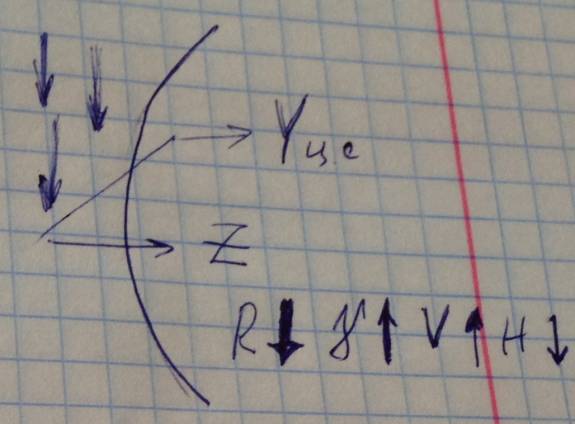 Yцс
Z
R ↓ γ ↑ V ↑ H ↓